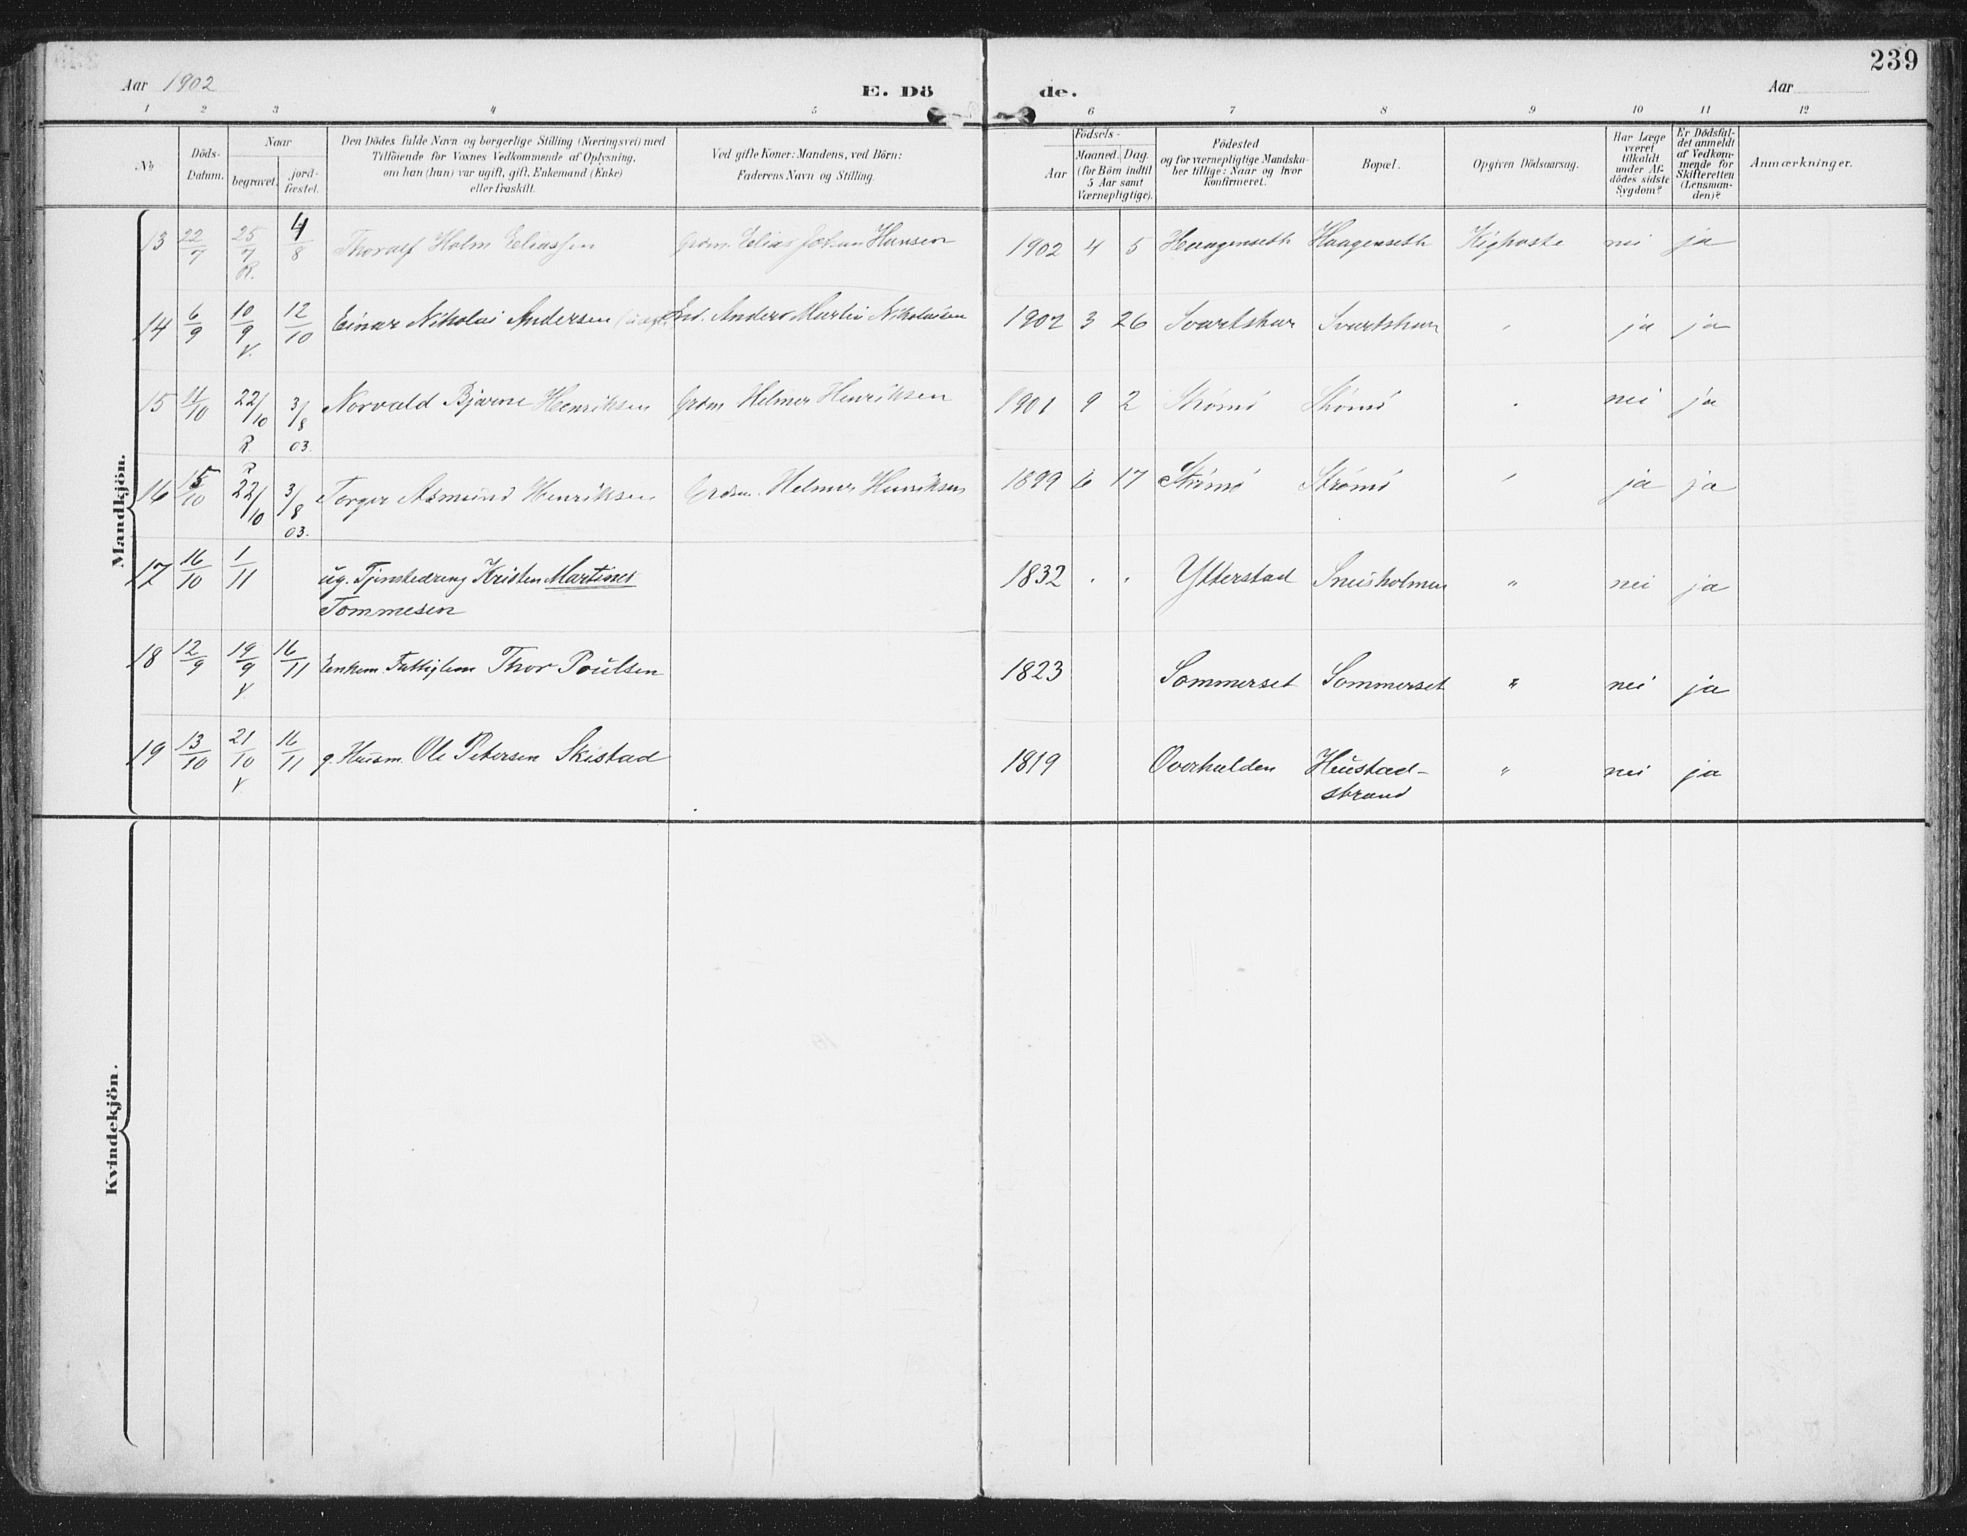 239
Aar 1902 E. Dö de. Aar
1 2 3 4 5 6 7 8 9 10 11 12
No
Döds-Datum.
Naar
begravet.
jord-fæstet.
Den Dödes fulde Navn og borgerlige Stilling (Næringsvei) med
Tilföiende for Voxnes Vedkommende af Oplysning,
om han (hun) var ugift, gift, Enkemand (Enke)
eller fraskilt.
Ved gifte Koner: Mandens, ved Börn:
Faderens Navn og Stilling.
Födsels-
Aar
Maaned. Dag.
(for Börn indtil
5 Aar samt
Værnepligtige).
Födested
og for værnepligtige Mandska-
ber tillige: Naar og hvor
konfirmeret.
Bopæl.
Opgiven Dödsaarsag.
Har Læge
været
tilkaldt
under Af-
dödes sidste
Sygdom?
Er Dödsfal-
det anmeldt
af Vedkom-
mende for
Skifteretten
(Lensman-
den)?
Anmærkninger.
Mandkjön.
13 22/7 25/7 R. 4/8 Thoralf Holm Eliassen Grdm. Elias Johan Hansen 1902 4 5 Haagenseth Haagenseth Kighoste nei ja
14 6/9 10/9 V. 12/10 Einar Nikolai Andersen Ind. Anders Martin Nikolaisen 1902 3 26 Svartskar Svartskar " ja ja
15 11/10 22/10 R. 3/8 03. Norvald Bjarne Henriksen Grdm Helmer Henriksen 1901 9 2 Strømø Strømø " nei ja
16 15/10 R 22/10 3/8 03. Torger Asmund Henriksen Grdm. Helmer Henriksen 1899 6 17 Strømø Strømø " ja ja
17 16/10 1/11 ug. Tjenestedreng Kristen Martinus
Tommesen 1832 " " Ytterstad Sneisholmen " nei ja
18 12/9 19/9 V. 16/11 Enkem. Fattiglem Thor Poulsen 1823 Sommerset Sommerset " nei ja
19 13/10 21/10 V. 16/11 g. Husm. Ole Petersen Skistad 1819 Overhalden Hustad-
strand " nei ja
Kvindekjön.